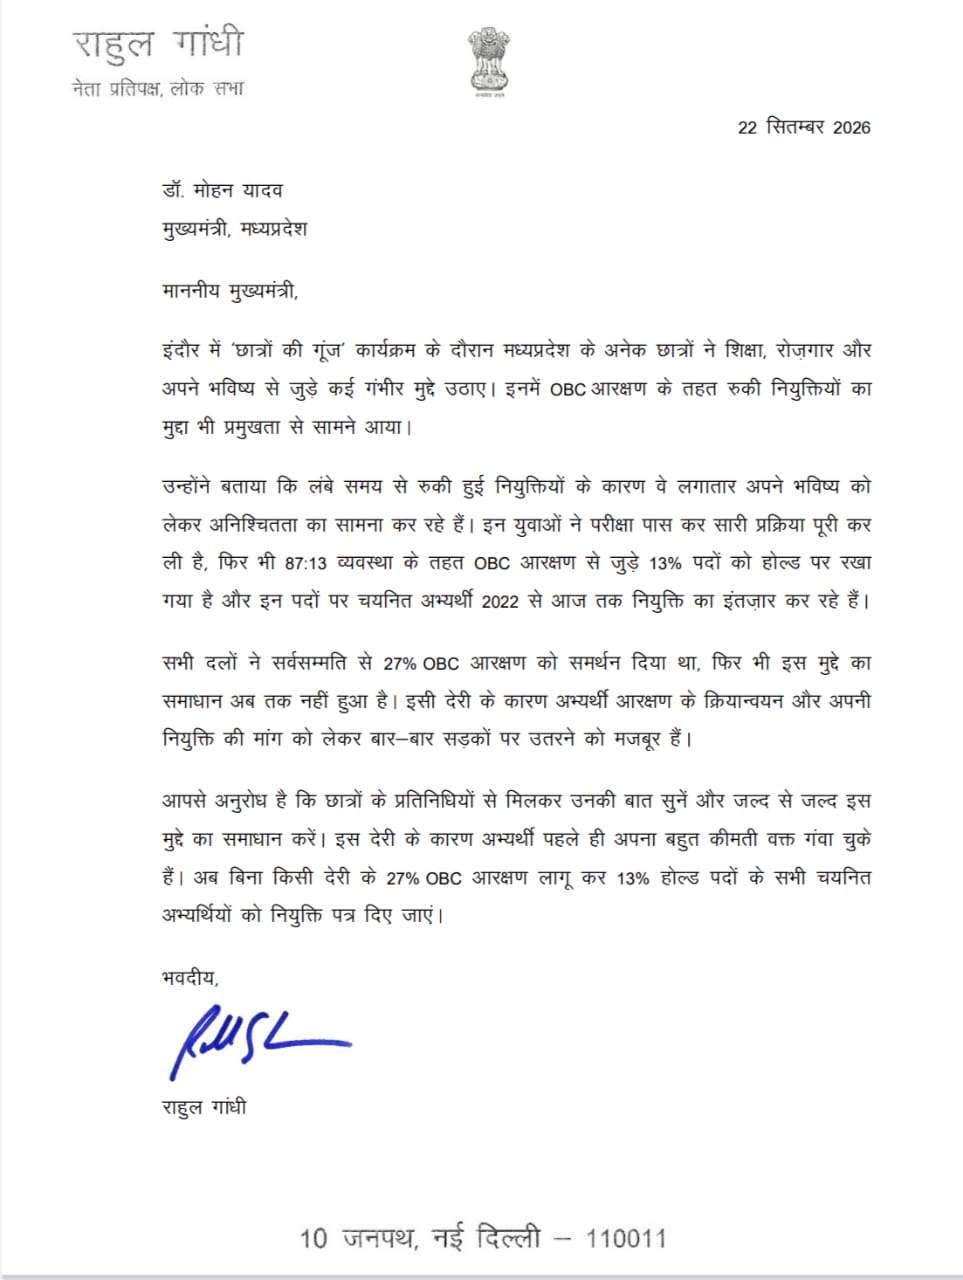 राहुल गांधी
नेता प्रतिपक्ष, लोक सभा
सत्यमेव जयते
22 सितम्बर 2026
डॉ. मोहन यादव
मुख्यमंत्री, मध्यप्रदेश
माननीय मुख्यमंत्री,
इंदौर में 'छात्रों की गूंज' कार्यक्रम के दौरान मध्यप्रदेश के अनेक छात्रों ने शिक्षा, रोज़गार और
अपने भविष्य से जुड़े कई गंभीर मुद्दे उठाए। इनमें OBC आरक्षण के तहत रुकी नियुक्तियों का
मुद्दा भी प्रमुखता से सामने आया।
उन्होंने बताया कि लंबे समय से रुकी हुई नियुक्तियों के कारण वे लगातार अपने भविष्य को
लेकर अनिश्चितता का सामना कर रहे हैं। इन युवाओं ने परीक्षा पास कर सारी प्रक्रिया पूरी कर
ली है, फिर भी 87:13 व्यवस्था के तहत OBC आरक्षण से जुड़े 13% पदों को होल्ड पर रखा
गया है और इन पदों पर चयनित अभ्यर्थी 2022 से आज तक नियुक्ति का इंतज़ार कर रहे हैं।
सभी दलों ने सर्वसम्मति से 27% OBC आरक्षण को समर्थन दिया था, फिर भी इस मुद्दे का
समाधान अब तक नहीं हुआ है। इसी देरी के कारण अभ्यर्थी आरक्षण के क्रियान्वयन और अपनी
नियुक्ति की मांग को लेकर बार–बार सड़कों पर उतरने को मजबूर हैं।
आपसे अनुरोध है कि छात्रों के प्रतिनिधियों से मिलकर उनकी बात सुनें और जल्द से जल्द इस
मुद्दे का समाधान करें। इस देरी के कारण अभ्यर्थी पहले ही अपना बहुत कीमती वक्त गंवा चुके
हैं। अब बिना किसी देरी के 27% OBC आरक्षण लागू कर 13% होल्ड पदों के सभी चयनित
अभ्यर्थियों को नियुक्ति पत्र दिए जाएं।
भवदीय,
राहुल गांधी
10 जनपथ, नई दिल्ली – 110011